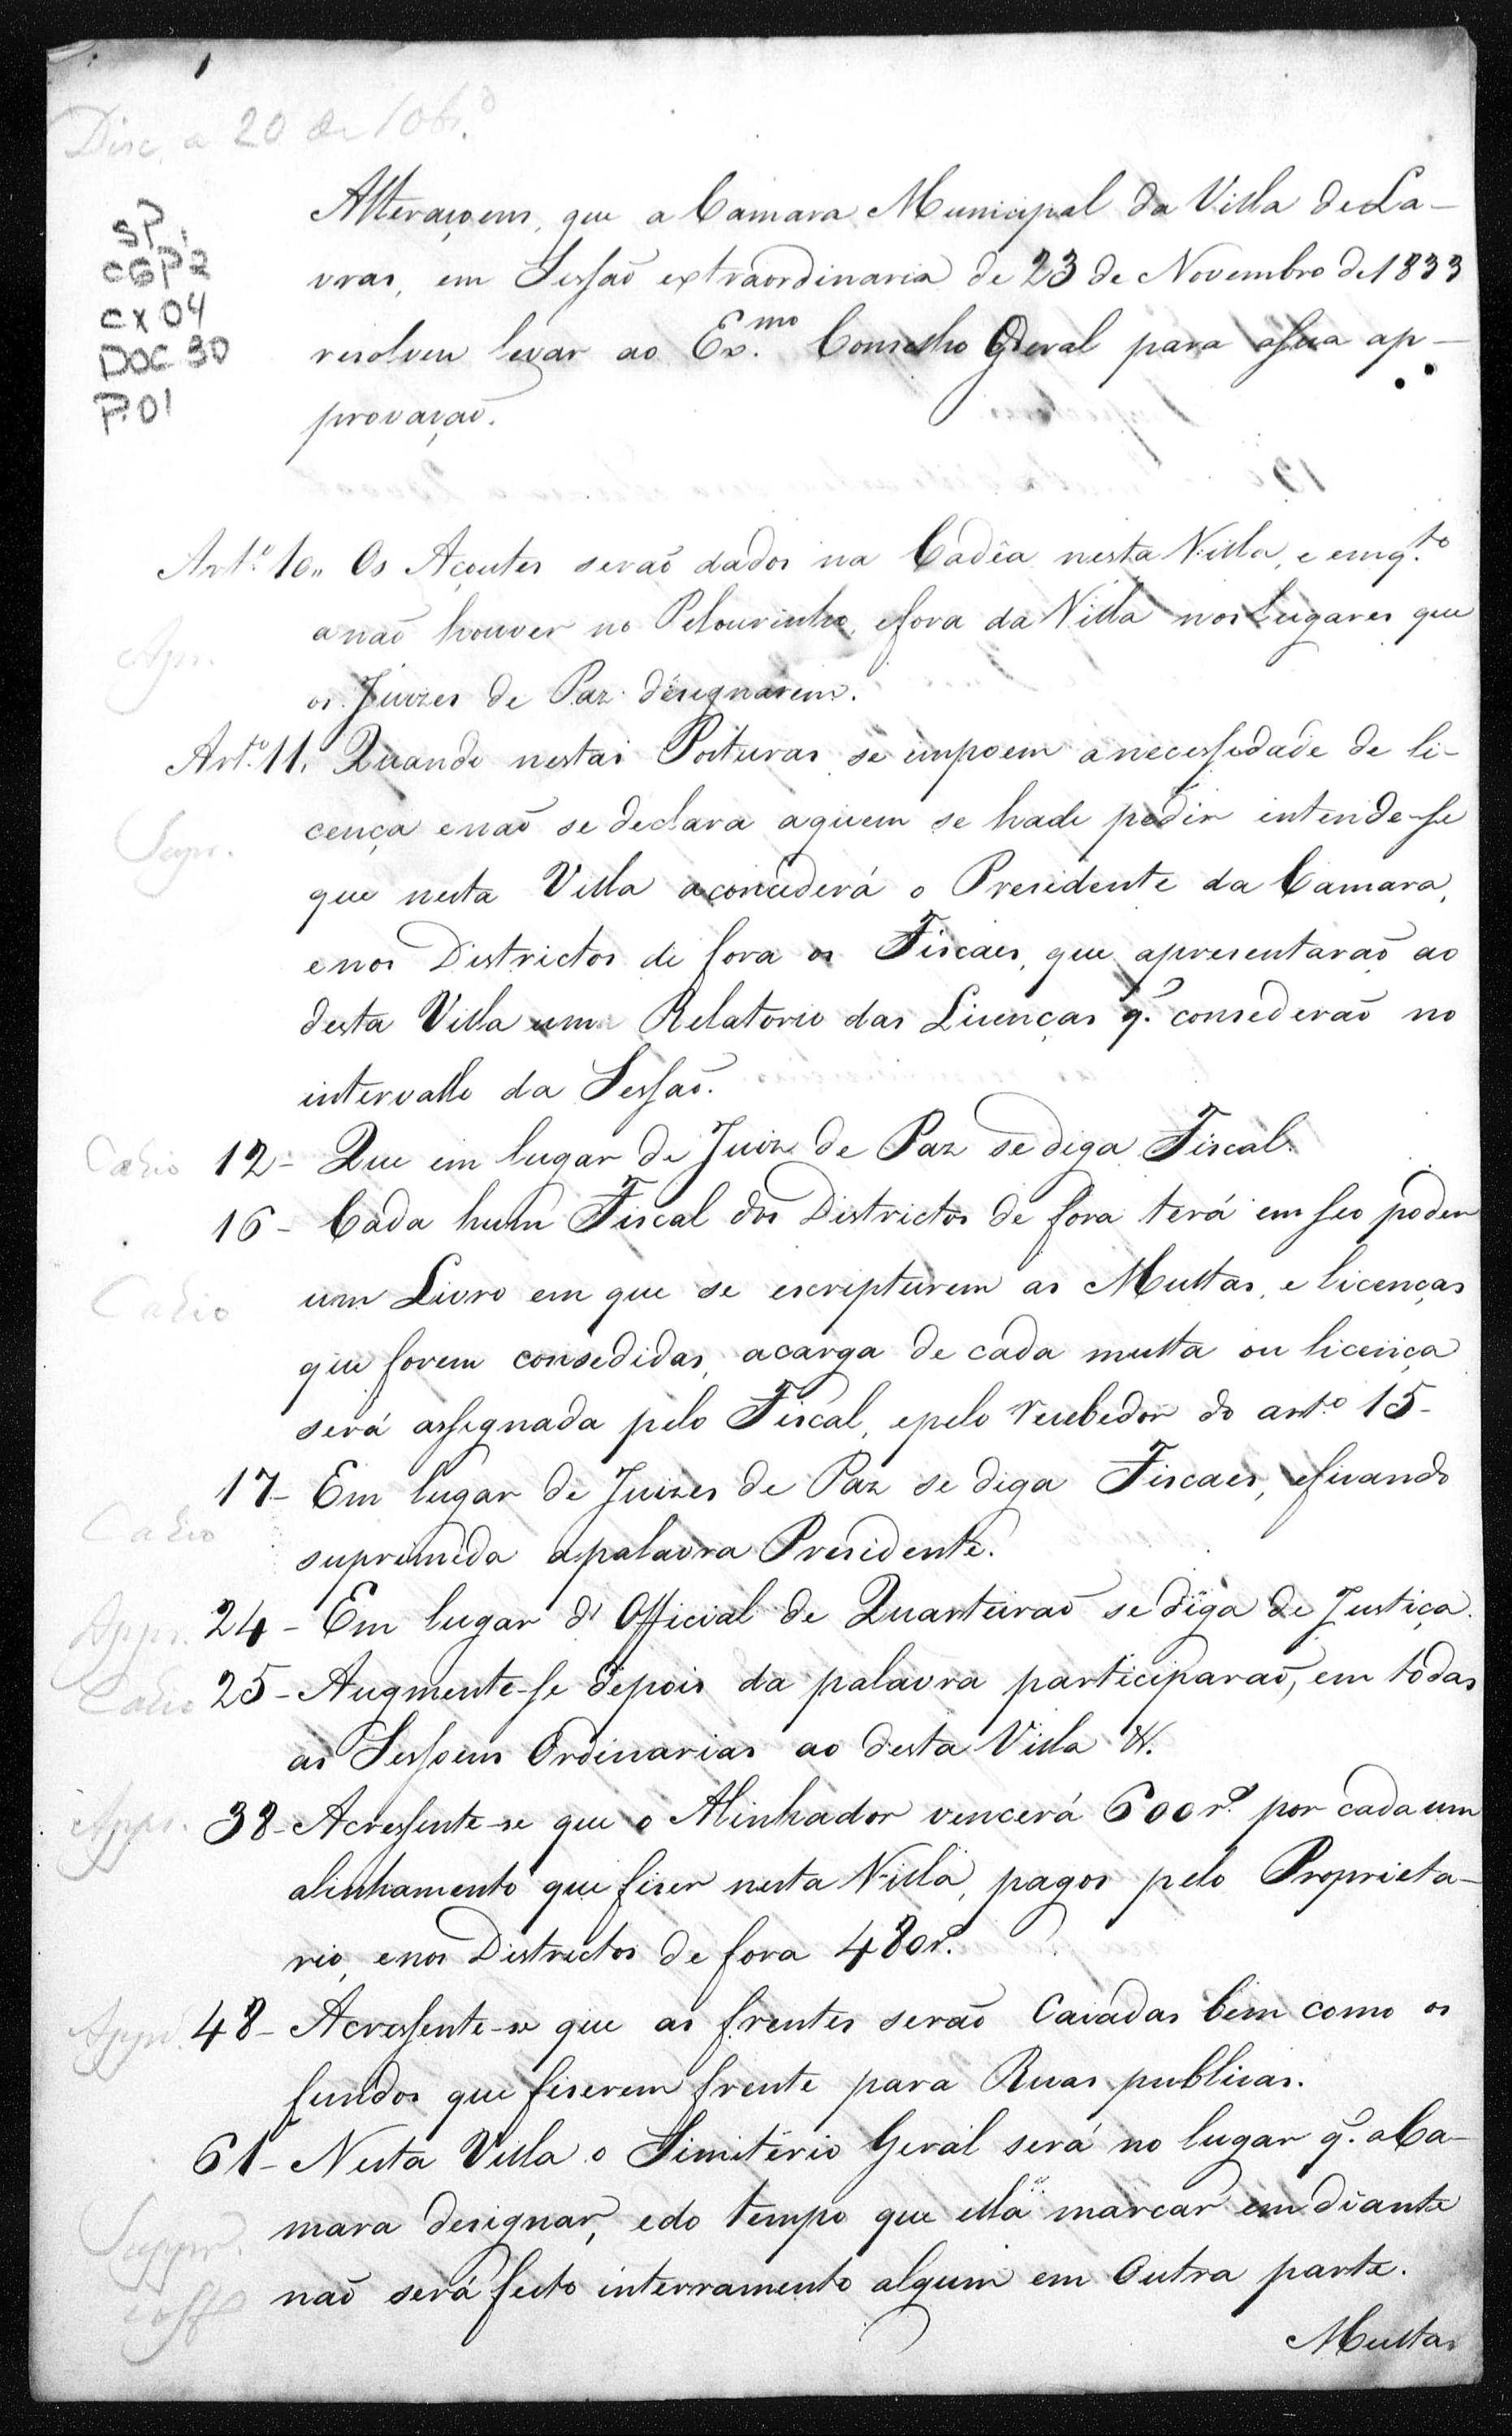 Disc. a 20 de 10br.o
SP
CGP2
CX 04
DOC 30
P.01
Alteraçoens, que a Camara Municipal da Villa de La-
vras, em Sessaõ extraordinaria de 23 de Novembro de 1833
resolveu levar ao Ex.mo Conselho Geral para a sua ap-
provaçaõ.
Art.o 10,, Os Açoutes seraõ dados na Cadêa nesta Villa, e emq.to
a naõ houver no Pelourinho, e fora da Villa nos Lugares que
Apr.
os Juizes de Paz designarem.
Art.o 11. Quando nestas Posturas se impoem a necessidade de li-
Supr.
cença e naõ se declara a quem se hade pedir intende-se
que nesta Villa a concederá o Presidente da Camara,
e nos Districtos de fora os Fiscaes, que apresentaraõ ao
desta Villa um Relatorio das Licenças q. consederaõ no
intervallo da Sessaõ.
Cahio 12- Que em lugar de Juiz de Paz se diga Fiscal.
16- Cada hum Fiscal dos Districtos de fora terá em seo poder
Cahio
um Livro em que se escripturem as Multas, e licenças
que forem consedidas, a carga de cada multa ou licença
será assignada pelo Fiscal, e pelo recebedor do art.o 15-
17- Em lugar de Juizes de Paz se diga Fiscaes, e ficando
Cahio
suprimida a palavra Presidente.
Appr. 24- Em lugar d' Official de Quarteiraõ se diga de Justiça.
Cahio 25- Augmente-se depois da palavra participaraõ, em todas
as Sessoens Ordinarias ao desta Villa &.
Appr. 38- Acressente-se que o Alinhador vencerá 600 r.s por cada um
alinhamento que fiser nesta Villa, pagos pelo Proprieta-
rio, e nos Districtos de fora 480 r.s
Appr. 48- Acressente-se que as frentes seraõ Caiadas bem como os
fundos que fiserem frente para Ruas publicas.
61- Nesta Villa o Simitério Geral será no lugar q. a Ca-
mara designar, e do tempo que ella marcar em diante
Suppr.
naõ será feito interramento algum em Outra parte.
Multas